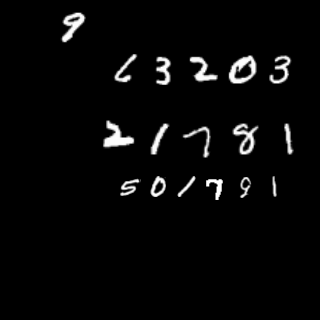 9
63203
21781
501791